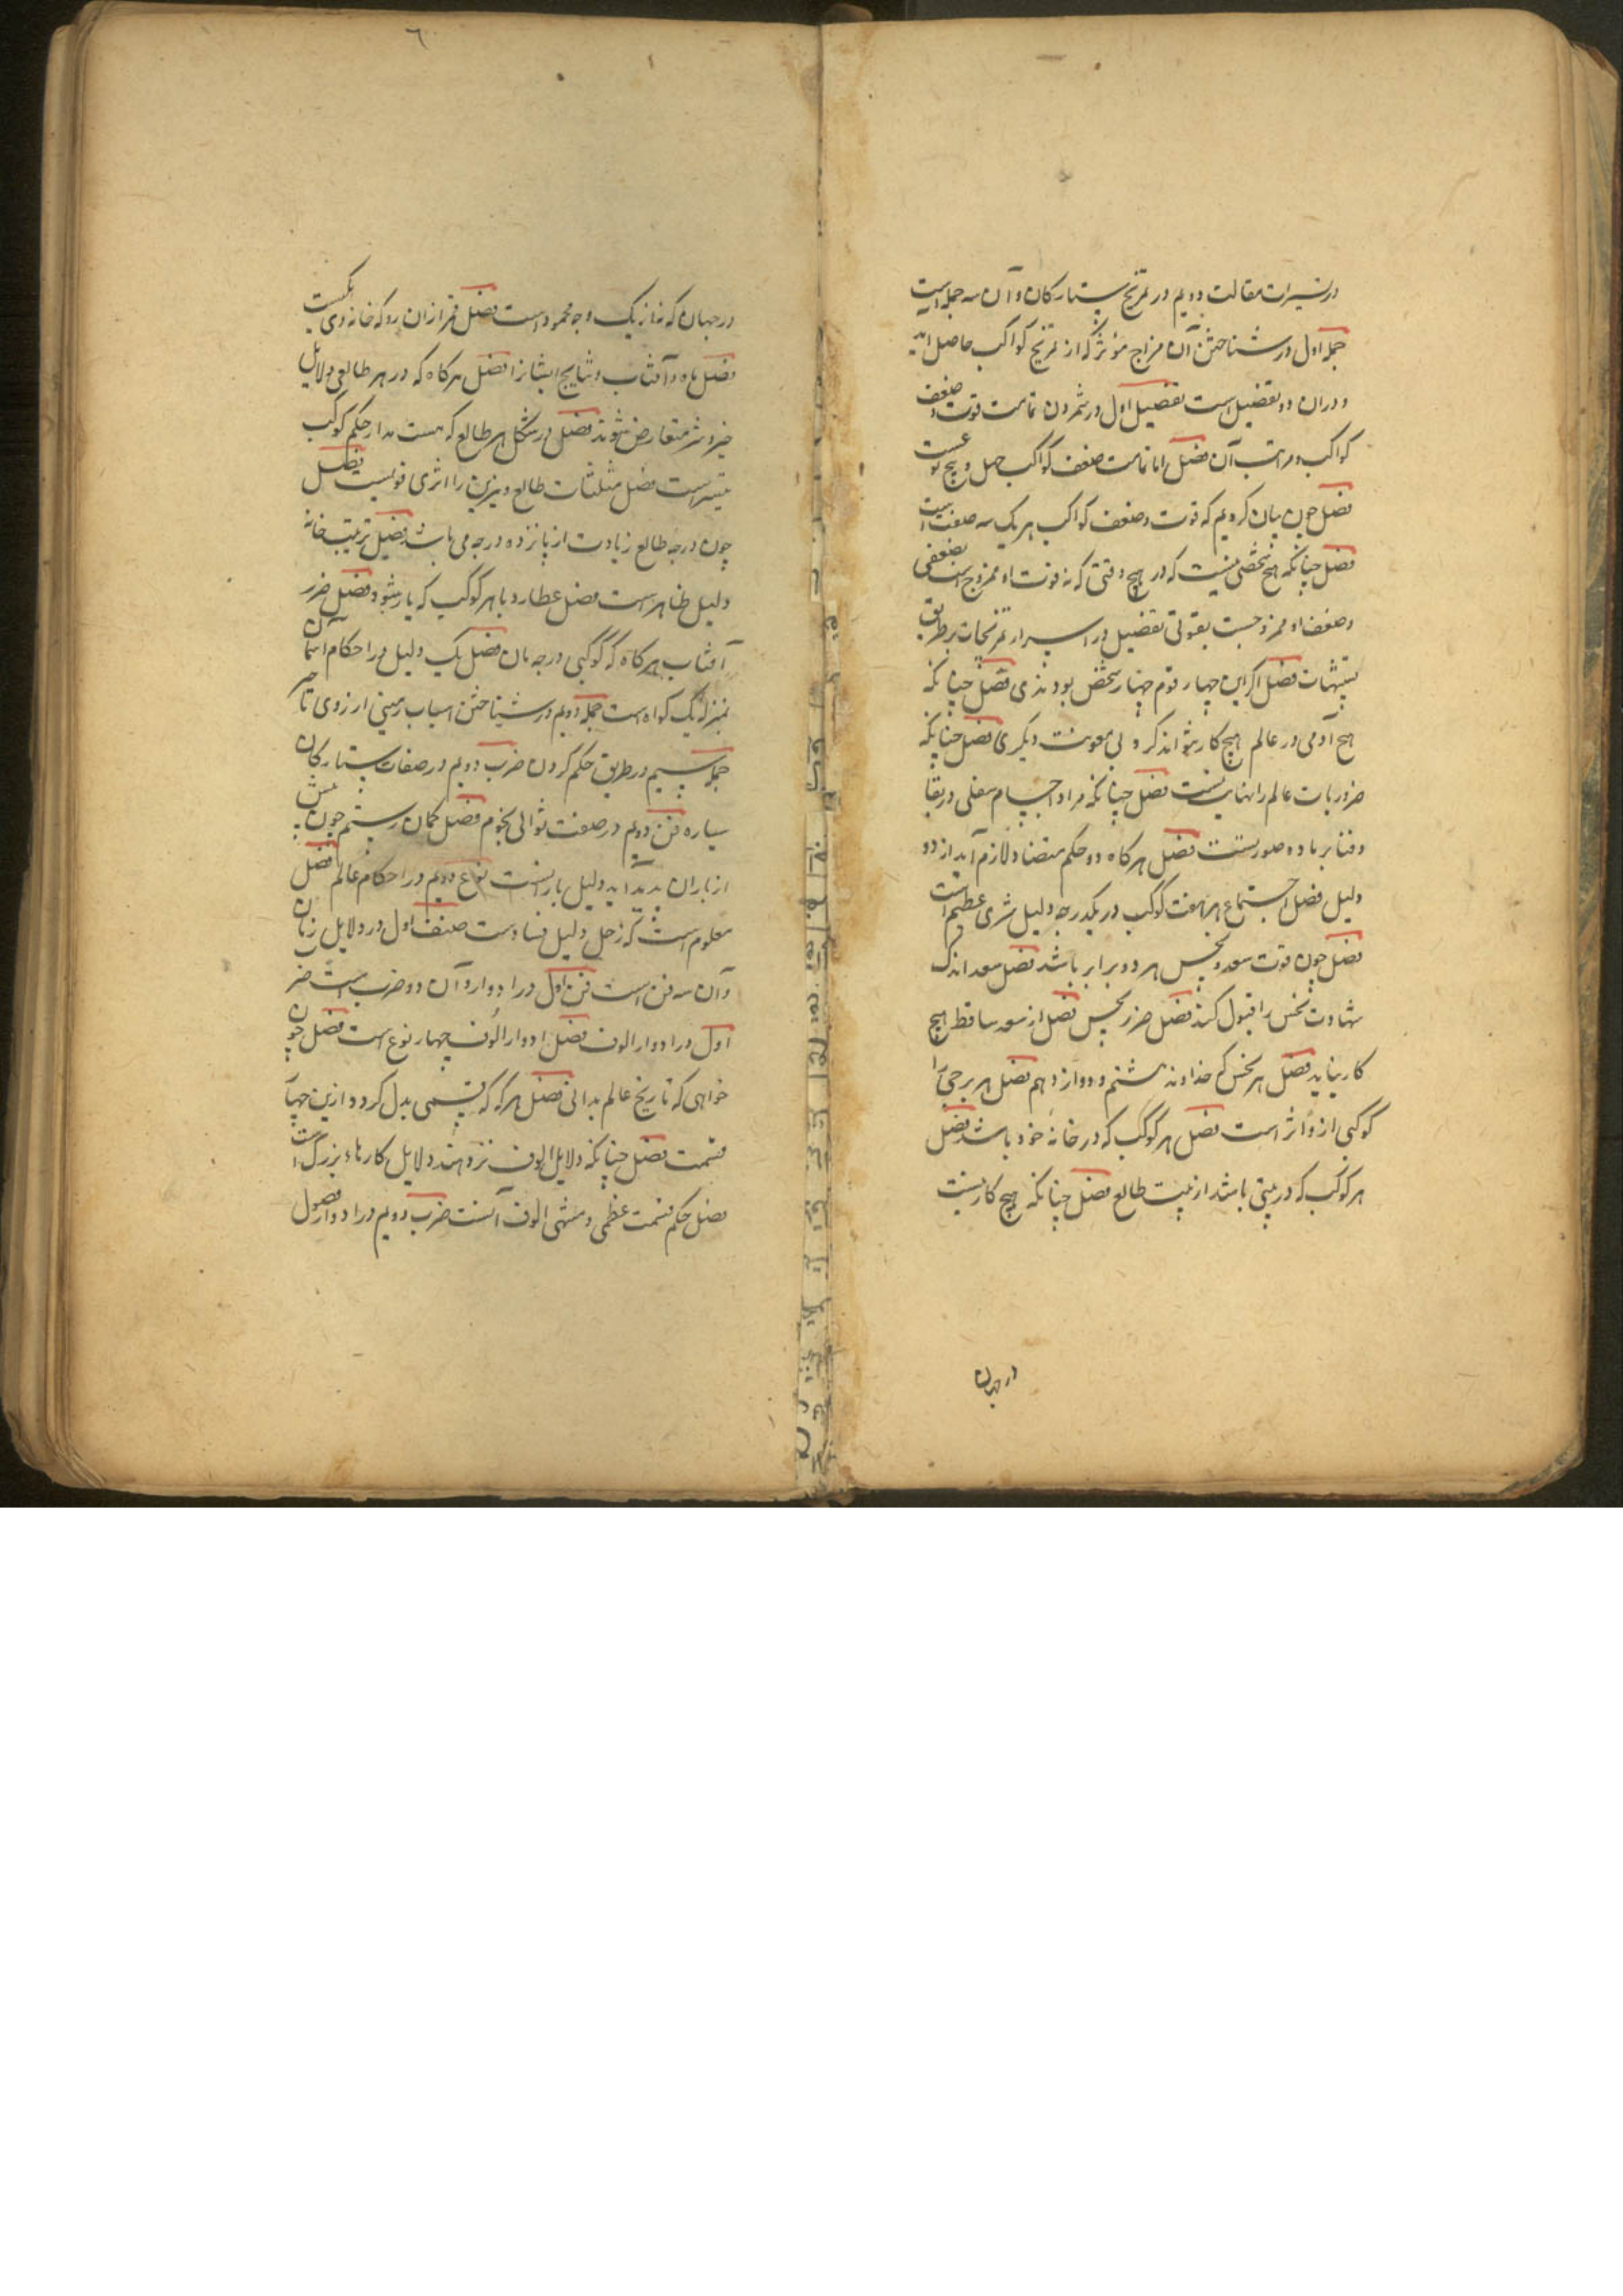 در تسییرات مقالت دویم در تمزیج ستارکان و آن سه جمله است
جمله اول در شناختن آن مزاج مؤثر که از تمزیج کواکب حاصل اید
و دران دو تفضیل است تفضیل اول در شمردن تمامت قوت و ضعف
کواکب و مراتب آن فصل اما تمامت ضعف کواکب چهل و پنج نوعست
فصل چون بیان کردیم که قوت و ضعف کواکب هر یک سه صنفست
فصل چنانکه هیچ شخصی نیست که در هیچ وقتی که نه قوت او ممزوج است بضعفی
و ضعف او ممزوجست بقوتی تفضیل در اسرار تمزیجات بر طریق
تنبیهات فصل اکر این چهار قوم چهار شخص بودندی فصل چنانکه
هیچ آدمی در عالم هیچ کار نتواند کرد بی معونت دیکری فصل چنانکه
ضروریات عالم را نهایت نیست فصل چنانکه مراد اجسام سفلی در بقا
و فنا بر ماده صورتست فصل هر کاه دو حکم متضاد لازم آید از دو
دلیل فصل اجتماع هر هفت کوکب در یکدرجه دلیل شری عظیم است
فصل چون قوت سعد و نحس هر دو برابر باشد فصل سعد اندک
شهادت نحس را قبول کند فصل ضرر نحس فصل از سعد ساقط هیچ
کار نیاید فصل هر نحس که خداوند هشتم و دوازدهم فصل هر برجی را
کوکبی از و اثر است فصل هر کوکب که در خانه خود باشد فصل
هر کوکب که در بیتی باشد از بیت طالع فصل چنانکه هیچ کار نیست
در جهان
٦
در جهان که نه از یک وجه محمود است فصل قمر از ان رو که خانه وی یکیست
فصل ماه و آفتاب و نتایج ایشانرا فصل هر کاه که در هر طالعی دلایل
خیر و شر متعارض شوند فصل در شکل هر طالع که هست مدار حکم کوکب
است فصل مثلثات طالع و نیرین را اثری قویست فصل
چون درجه طالع زیادت از پانزده درجه می باشد فصل ترتیب خانه
دلیل ظاهر است فصل عطارد با هر کوکب که یار شود فصل ضرر
آفتاب هر کاه که کوکبی درجه مان فصل یک دلیل در احکام آسمان
بمنزله یک کواه است جمله دویم در شناختن اسباب زمینی از روی تاثیر
جمله سیم در طریق حکم کردن ضرب دویم در صفات ستارکان
سیاره فن دویم در صفت توالی نجوم فصل کمان رستم چون پیش
از باران پدید اید دلیل بارانست نوع دویم در احکام عالم فصل
معلوم است که زحل دلیل فساد است صنف اول در دلایل زمان
و آن سه فن است فن اول در ادوار و آن دو ضرب است ضرب
اول در ادوار الوف فصل ادوار الوف چهار نوع است فصل چون
خواهی که تاریخ عالم بدانی فصل هر که که قسمی بدل کردد ازین چهار
قسمت فصل چنانکه دلایل الوف نزد هند دلایل کارهاء بزرگ است
فصل حکم قسمت عظمی و منتهی الوف آنست ضرب دویم در ادوار فصول